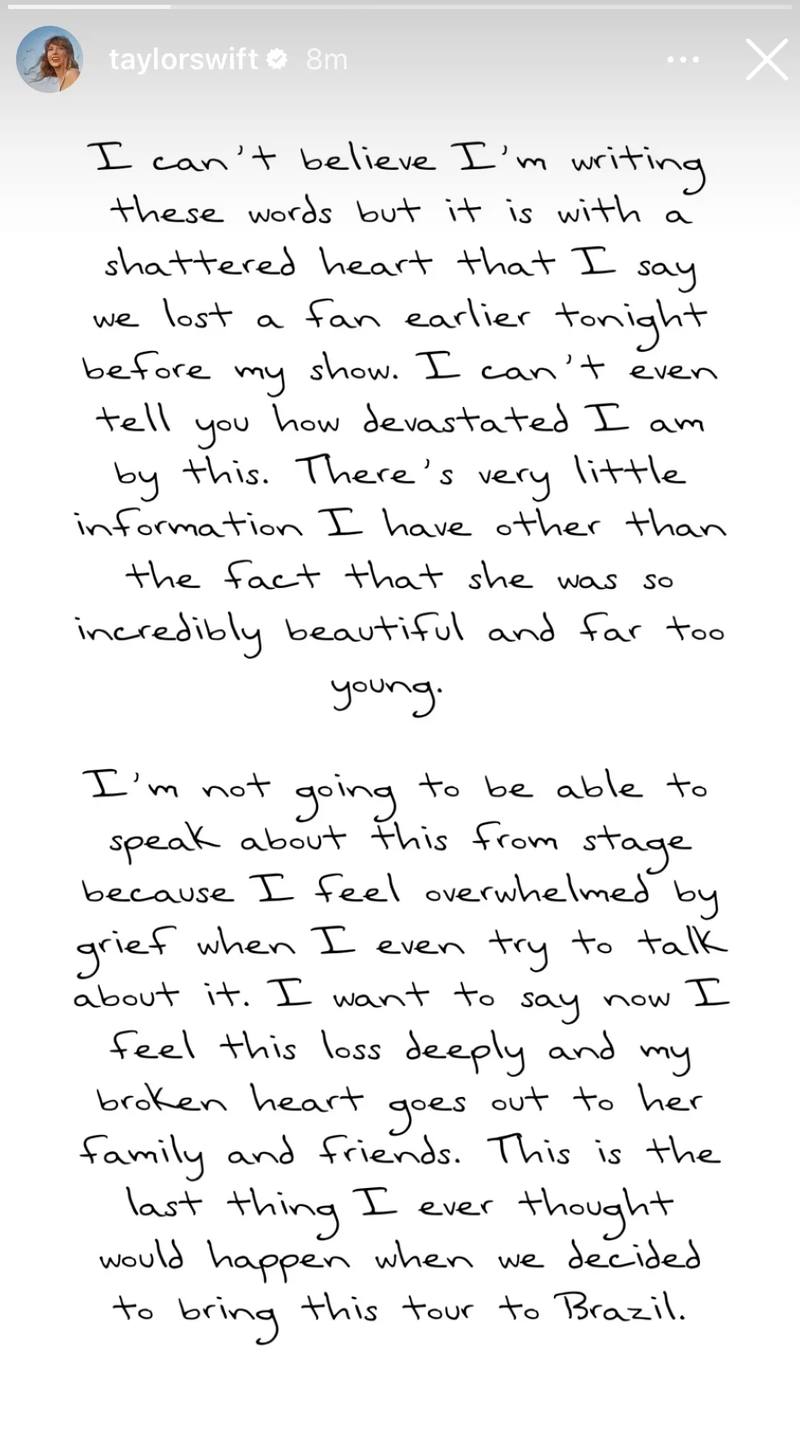 taylorswift 8m
I can't believe I'm writing
these words but it is with a
shattered heart that I say
we lost a fan earlier tonight
before my show. I can't even
tell you how devastated I am
by this. There's very little
information I have other than
the fact that she was so
incredibly beautiful and far too
young.
I'm not going to be able to
speak about this from stage
because I feel overwhelmed by
grief when I even try to talk
about it. I want to say now I
feel this loss deeply and my
broken heart goes out to her
family and friends. This is the
last thing I ever thought
would happen when we decided
to bring this tour to Brazil.